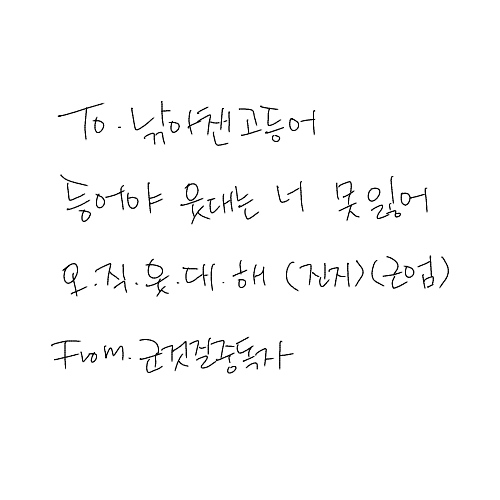 To. 낚아챈고등어
등어야 웃대는 너 못 잃어
오.직.웃.대.해 (진지)(근엄)
From. 군것질중독자